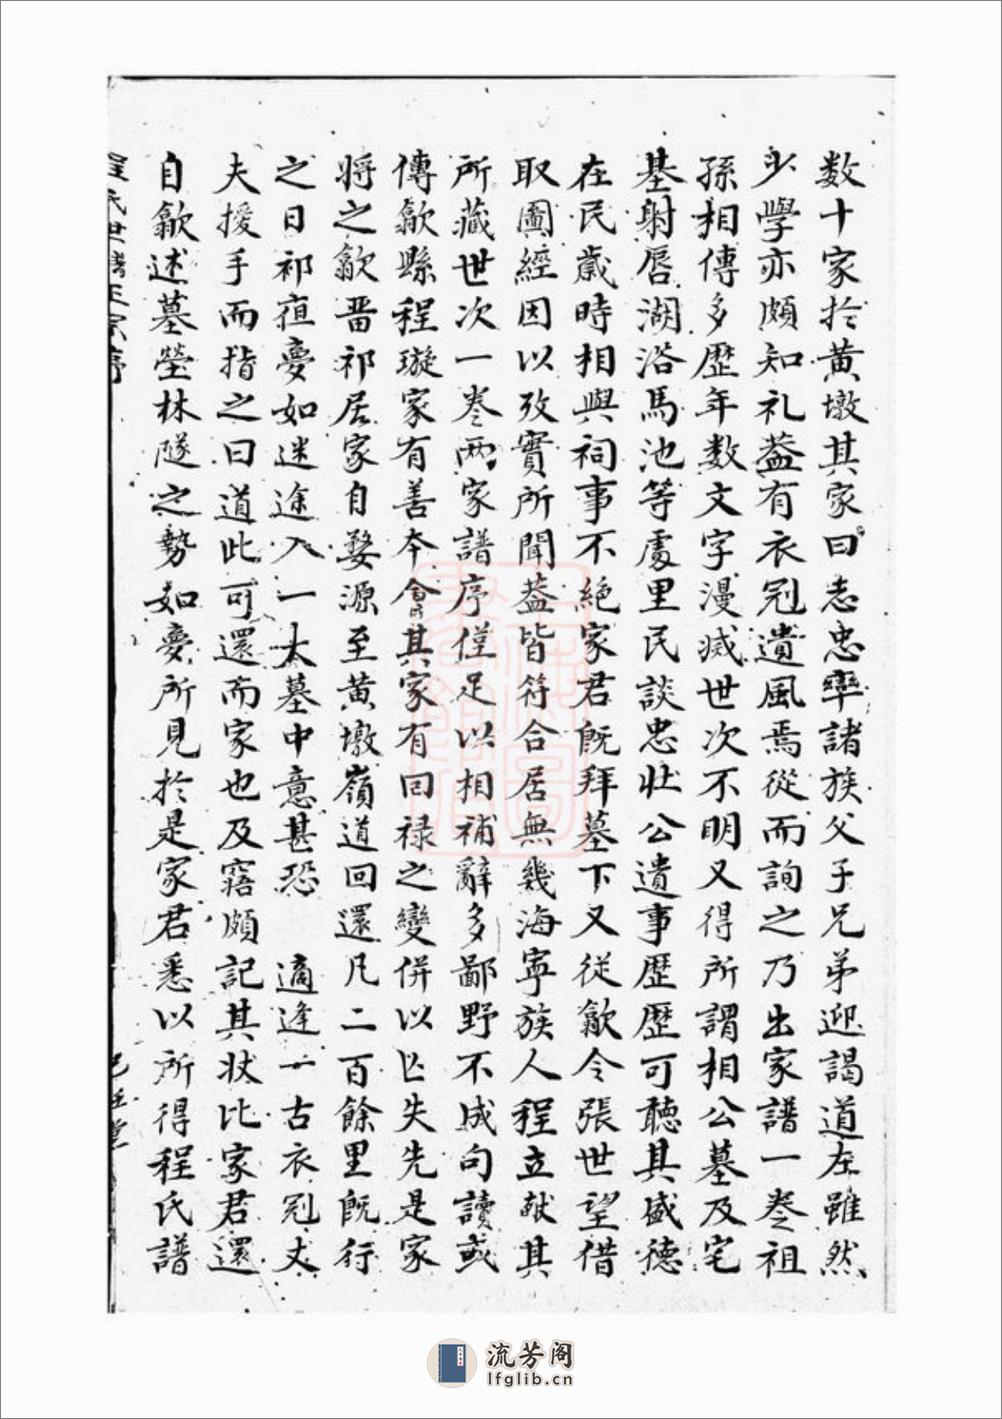 数十家於黄墩其家曰志忠率諸族父子兄弟迎謁道左雖然
少學亦頗知礼葢有衣冠遺風焉從而詢之乃出家譜一巻祖
孫相傳多歷年数文字漫滅世次不明又得所謂相公墓及宅
基射蜃湖浴馬池等處里民談忠壮公遺事歴歴可聴其盛徳
在民歲時相與祠事不絶家君既拜墓下又従歙令張世望借
取圖經因以攷實所聞葢皆符合居無幾海寜族人程立献其
所藏世次一巻两家譜序僅足以相補辭多鄙野不成句讀或
傳歙縣程璇家有善本會其家有囘禄之變併以亡失先是家
将之歙畨祁居家自婺源至黄墩嶺道回還凡二百餘里既行
之日祁夜夢如迷途入一大墓中意甚恐適逢一古衣冠丈
夫援手而指之曰道此可還而家也及寤頗記其状比家君還
自歙述墓塋林隧之勢如夢所見於是家君悉以所得程氏譜
程氏世譜正宗序